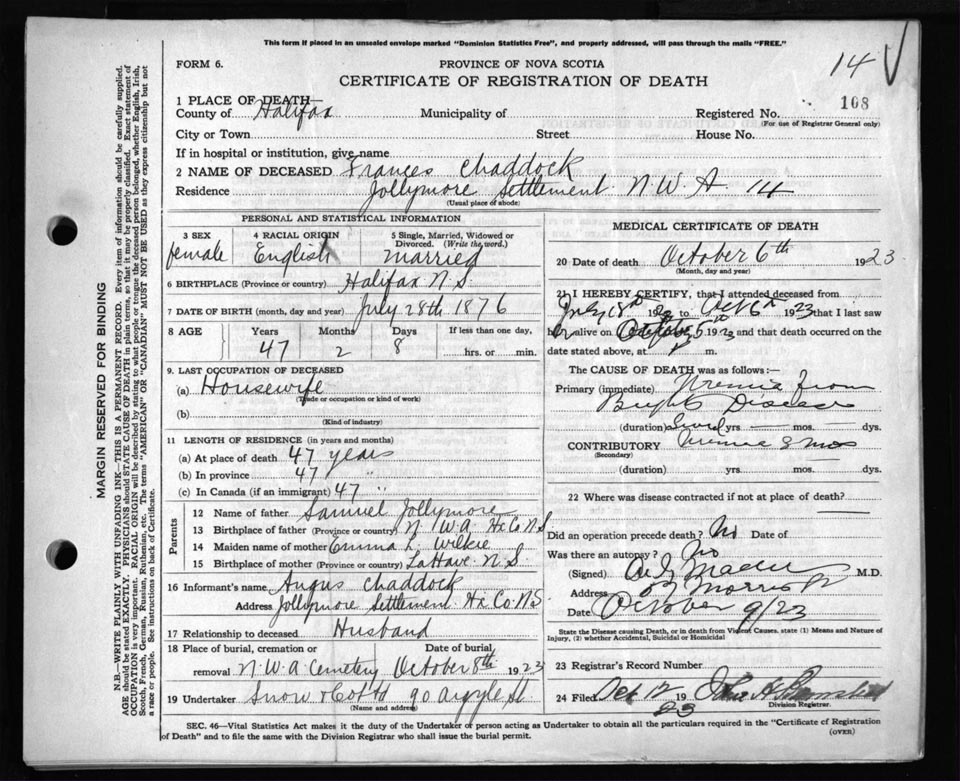 This form if placed in an unsealed envelope marked "Dominion Statistics Free", and properly addressed, will pass through the mails "FREE."
FORM 6.
PROVINCE OF NOVA SCOTIA
CERTIFICATE OF REGISTRATION OF DEATH
14 V
1 PLACE OF DEATH—
County of Halifax Municipality of Registered No. 108
(For use of Registrar General only)
City or Town Street House No.
If in hospital or institution, give name
2 NAME OF DECEASED Frances Chaddock
Residence Jollymore Settlement N.W.A. 14
(Usual place of abode)
PERSONAL AND STATISTICAL INFORMATION
3 SEX 4 RACIAL ORIGIN 5 Single, Married, Widowed or Divorced. (Write the word.)
female English married
6 BIRTHPLACE (Province or country) Halifax N.S.
7 DATE OF BIRTH (month, day and year) July 28th 1876
8 AGE Years Months Days If less than one day,
47 2 8 hrs. or min.
9. LAST OCCUPATION OF DECEASED
(a) Housewife
(Trade or occupation or kind of work)
(b)
(Kind of industry)
11 LENGTH OF RESIDENCE (in years and months)
(a) At place of death 47 years
(b) In province 47 "
(c) In Canada (if an immigrant) 47 "
Parents
12 Name of father Samuel Jollymore
13 Birthplace of father (Province or country) N.W.A. Hx Co N.S.
14 Maiden name of mother Emma L. Wilkie
15 Birthplace of mother (Province or country) LaHave N.S.
16 Informant's name Angus Chaddock
Address Jollymore Settlement Hx Co N S
17 Relationship to deceased Husband
18 Place of burial, cremation or removal Date of burial
N.W.A. Cemetery October 8th 1923
19 Undertaker Snow & Co Ltd 90 Argyle St.
(Name and address)
MEDICAL CERTIFICATE OF DEATH
20 Date of death October 6th 1923
(Month, day and year)
21 I HEREBY CERTIFY, that I attended deceased from
July 18th 1923 to Oct 6th 1923 that I last saw
h er alive on October 5 1923 and that death occurred on the
date stated above, at m.
The CAUSE OF DEATH was as follows:—
Primary (immediate) Uremia from
Brights Disease
(duration) yrs. — mos. — dys.
CONTRIBUTORY
(Secondary)
(duration) yrs. mos. dys.
22 Where was disease contracted if not at place of death?
Did an operation precede death? No Date of
Was there an autopsy? No
(Signed) M.D.
Address
Date October 9/23
State the Disease causing Death, or in death from Violent Causes, state (1) Means and Nature of
Injury, (2) whether Accidental, Suicidal or Homicidal
23 Registrar's Record Number
24 Filed Oct 12 1923 John H
Division Registrar.
SEC. 46—Vital Statistics Act makes it the duty of the Undertaker or person acting as Undertaker to obtain all the particulars required in the "Certificate of Registration
of Death" and to file the same with the Division Registrar who shall issue the burial permit. (OVER)
MARGIN RESERVED FOR BINDING
N.B. WRITE PLAINLY WITH UNFADING INK—THIS IS A PERMANENT RECORD. Every item of information should be carefully supplied.
AGE should be stated EXACTLY. PHYSICIANS should STATE CAUSE OF DEATH in plain terms, so that it may be properly classified. Exact statement of
OCCUPATION is very important. RACIAL ORIGIN will be described by stating to what people or tongue the deceased person belonged, whether English, Irish,
Scotch, French, German, Russian, Ruthenian, etc. The terms "AMERICAN" OR "CANADIAN" MUST NOT BE USED as they express citizenship but not
a race or people. See instructions on back of Certificate.